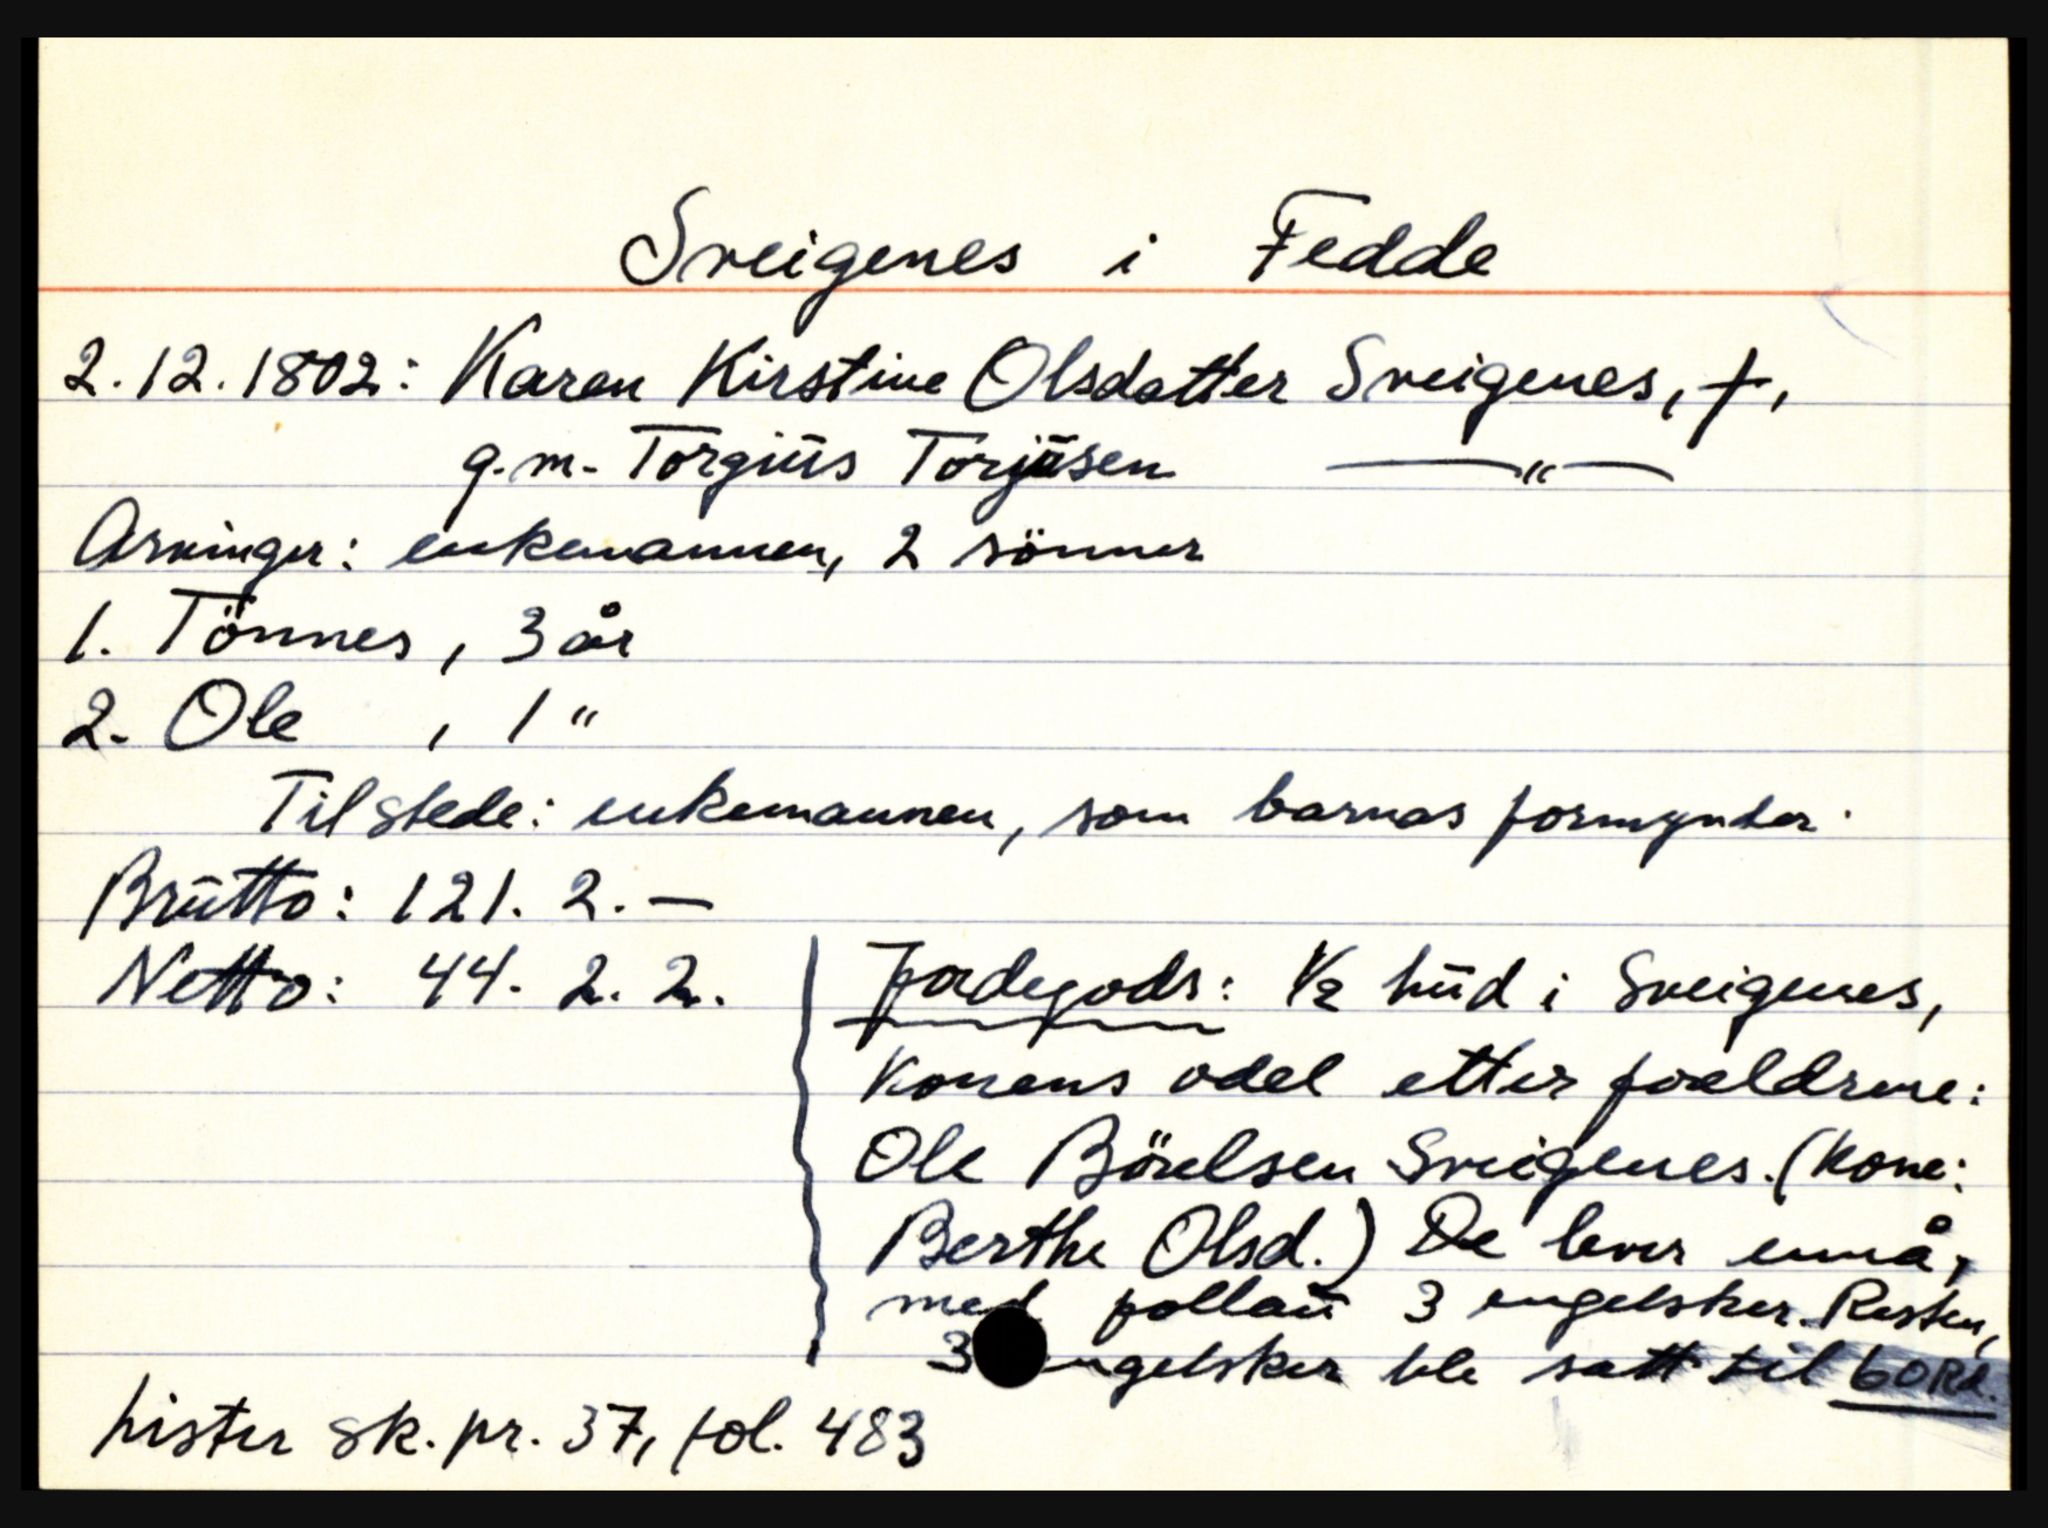 Sveigenes i Fedde
2.12.1802: Karen Kirstine Olsdatter Sveigenes, †,
g.m. Torgiüs Torjüsen —"—
Arvinger: enkemannen, 2 sönner
1. Tönnes, 3 år
2. Ole , 1 "
Tilstede: enkemannen, som barnas formynder.
Brütto: 121. 2. —
Netto: 44. 2. 2.
Jordegods: ½ hüd i Sveigenes,
konens odel etter foreldrene:
Ole Börelsen Sveigenes. (kone:
Berthe Olsd.) De lever ennå,
med follaü 3 engelsker. Resten,
3 engelsker ble satt til 60 Rd.
Lister sk. pr. 37, fol. 483